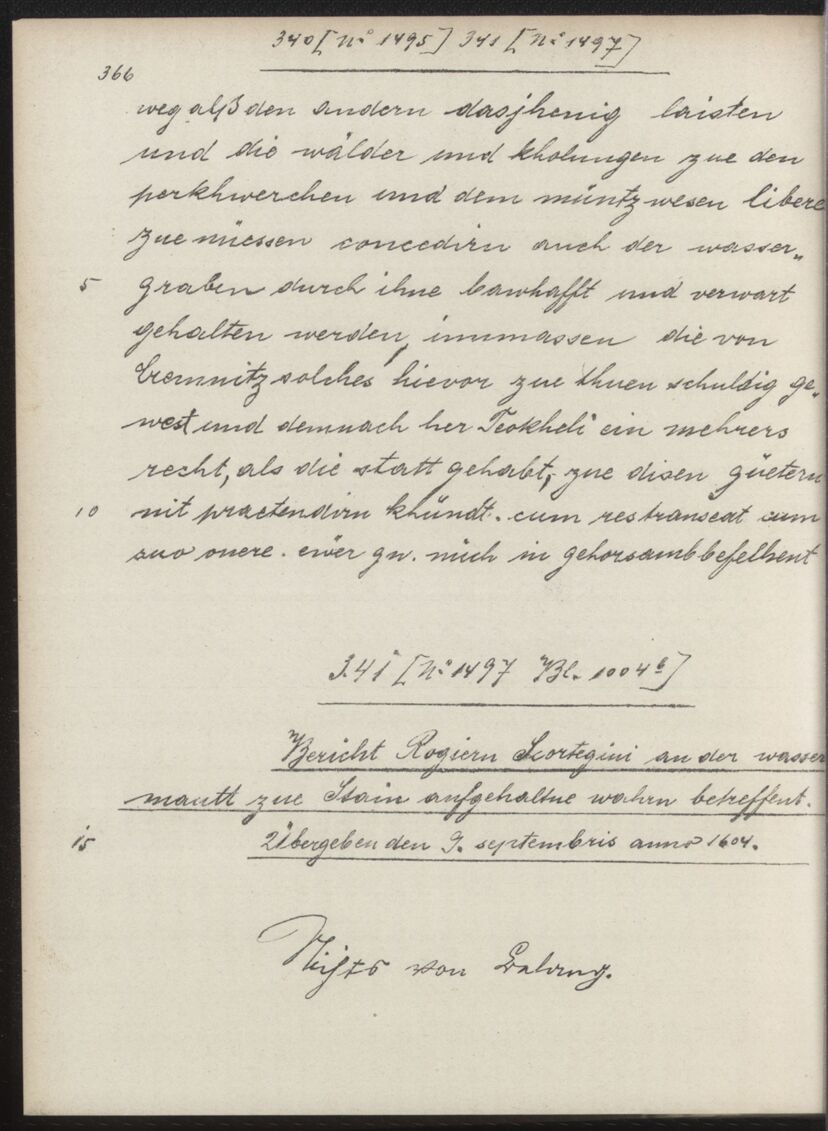 340 [N° 1495] 341 [N° 1497]
366
weg alß den andern dasjhenig laisten
und die wälder und kholungen zue den
perkhwerchen und dem müntzwesen libere
zue müessen concedirn auch der wasser„
5 graben durch ihne bawhafft und verwart
gehalten werden, inmassen die von
Cremnitz solches hievor zue thuen schuldig ge„
west und demnach her Teokheli ein mehrers
recht, als die statt gehabt, zue disen güetern
10 nit praetendirn khündt. cum res transeat cum
suo onere. ewer gn. mich in gehorsamb befelhent
341 [N° 1497 Bl. 1004b]
Bericht Rogiern Scortegini an der wasser
mautt zue Stain aufgehaltne wahrn betreffent.
15 Übergeben den 9. septembris anno 1604.
Nichts von Belang.